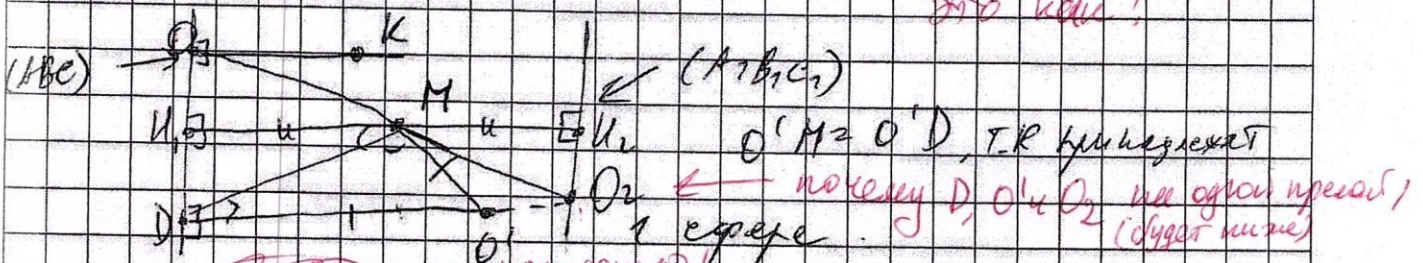 это как?
O K
(ABC) (A₁B₁C₁)
M
H₁ H₂ O'M = O'D, т.к принадлежат
O₂ почему D, O' и O₂ на одной прямой,
(будет ниже)
D O' 1 сфере.